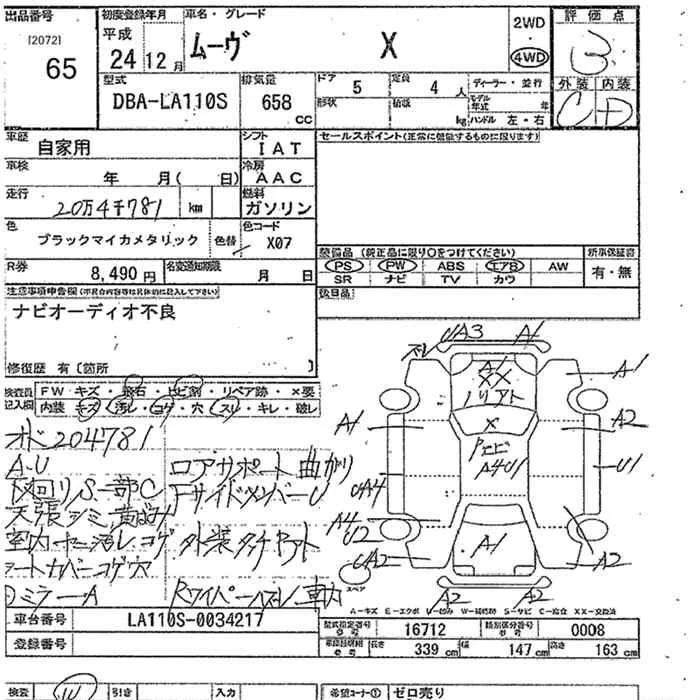 出品番号 初度登録年月 車名・グレード 評価点
[2072] 65 平成 24年12月 ムーヴ X 2WD 4WD 3
外装 内装
C D
型式 DBA-LA110S 排気量 658 CC ドア 5 定員 4 人 ディーラー・並行
形状 積載 kg モデル年式 年
ハンドル 左・右
車歴 自家用 シフト IAT セールスポイント(正常に機能するものに限ります)
車検 年 月( 日) 冷房 AAC
走行 20万4千781 km 燃料 ガソリン
色 ブラックマイカメタリック 色替 色コード X07
装備品 (純正品に限り○をつけてください) 新車保証書
PS PW ABS エアB AW 有・無
SR ナビ TV カワ
R券 8,490 円 名変通知期限 月 日
注意事項申告欄 後日品
ナビオーディオ不良
修復歴 有 [箇所 ]
検査員記入欄 FW キズ・飛石・ヒビ割・リペア跡・×要
内装 キズ・汚レ・コゲ・穴・スレ・キレ・破レ
メーター204781
A-U ロアサポート曲がり
下回りS一部C FサイドメンバーU
天張シミ黄ばみ
室内ヤニ汚レコゲ 外装タッチアト
シートカバーコゲ穴
ミラーA
UA3 A1
A1 XX A1
A1 X A2
A4U1 U1
UA4
A4 U2
UA2 A1 A2
A2 A2
スペア
A-キズ E-エクボ U-凹み W-補修跡 S-サビ C-腐食 XX-交換済
車台番号 LA110S-0034217
型式指定番号 16712 類別区分番号 0008
登録番号
長さ 339 cm 幅 147 cm 高さ 163 cm
検査 引き 入力 希望コーナー① ゼロ売り